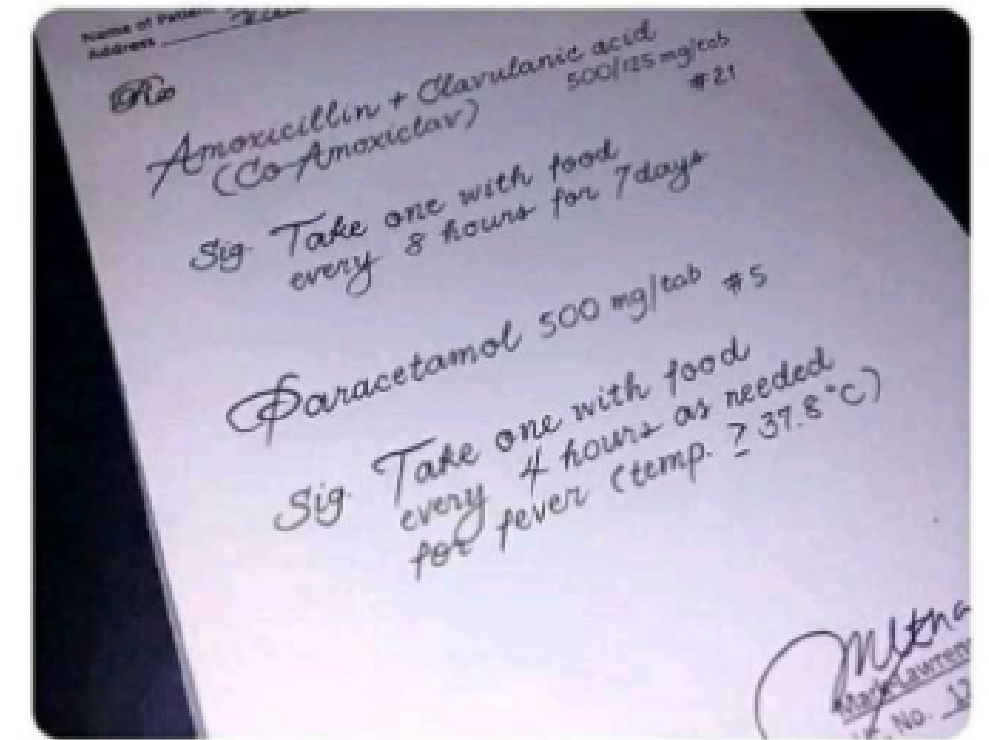 Name of Patient
Address
Rx
Amoxicillin + Clavulanic acid
(Co-Amoxiclav) 500/125 mg/tab
#21
Sig. Take one with food
every 8 hours for 7 days
Paracetamol 500 mg/tab #5
Sig. Take one with food
every 4 hours as needed
for fever (temp. ≥ 37.8°C)
No.